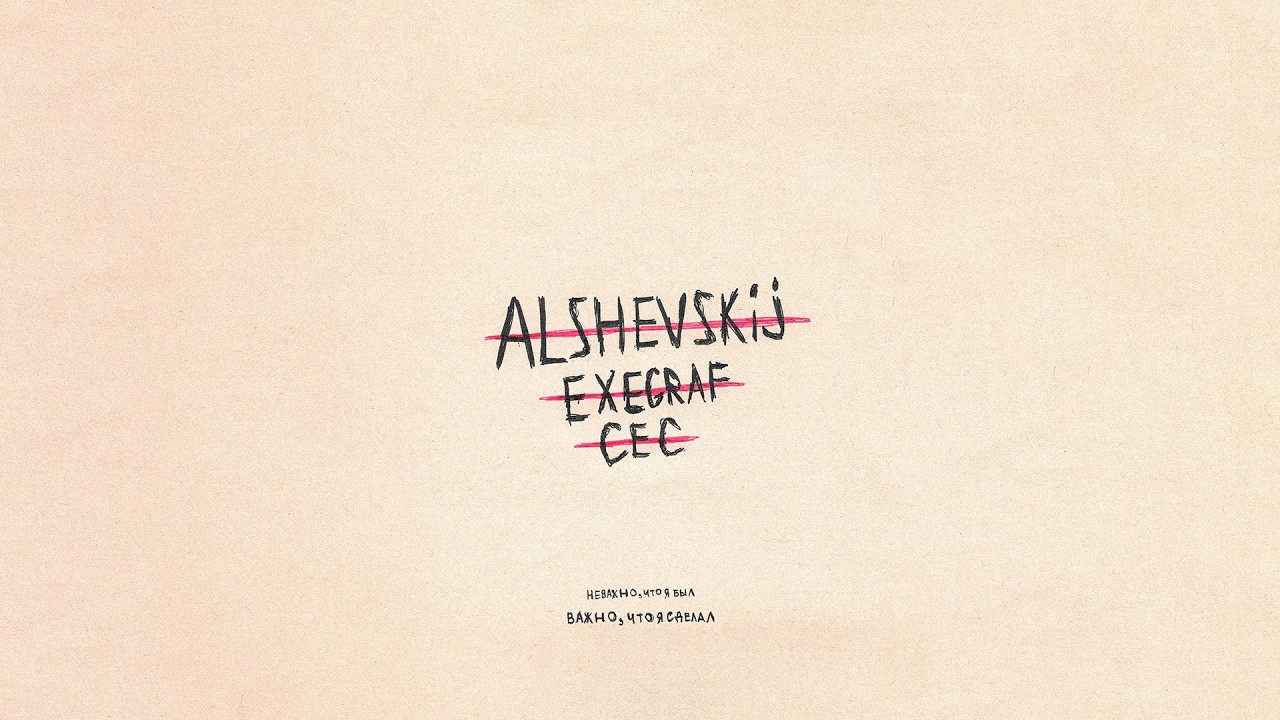 ALSHEVSKij
EXEGRAF
CEC
НЕВАЖНО, ЧТО Я БЫЛ
ВАЖНО, ЧТО Я СДЕЛАЛ